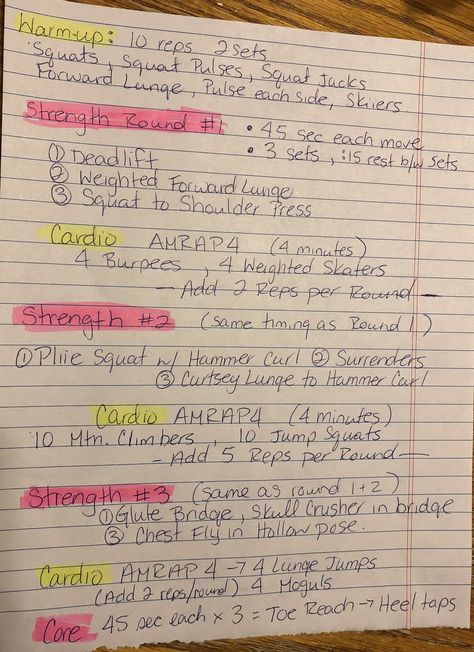 Warm-up: 10 reps 2 sets
Squats, Squat Pulses, Squat Jacks
Forward Lunge, Pulse each side, Skiiers
Strength Round #1 • 45 sec each move
• 3 sets, :15 rest b/w sets
① Deadlift
② Weighted Forward Lunge
③ Squat to Shoulder Press
Cardio AMRAP 4 (4 minutes)
4 Burpees, 4 Weighted Skaters
— Add 2 Reps per Round —
Strength #2 (same timing as Round 1)
① Pliie Squat w/ Hammer Curl ② Surrenders
③ Curtsey Lunge to Hammer Curl
Cardio AMRAP4 (4 minutes)
10 Mtn. Climbers, 10 Jump Squats
- Add 5 Reps per Round —
Strength #3 (same as round 1+2)
① Glute Bridge, Skull Crusher in bridge
③ Chest Fly in Hollow pose.
Cardio AMRAP 4 → 4 Lunge Jumps
(Add 2 reps/round) 4 Moguls
Core 45 sec each x 3 = Toe Reach → Heel taps